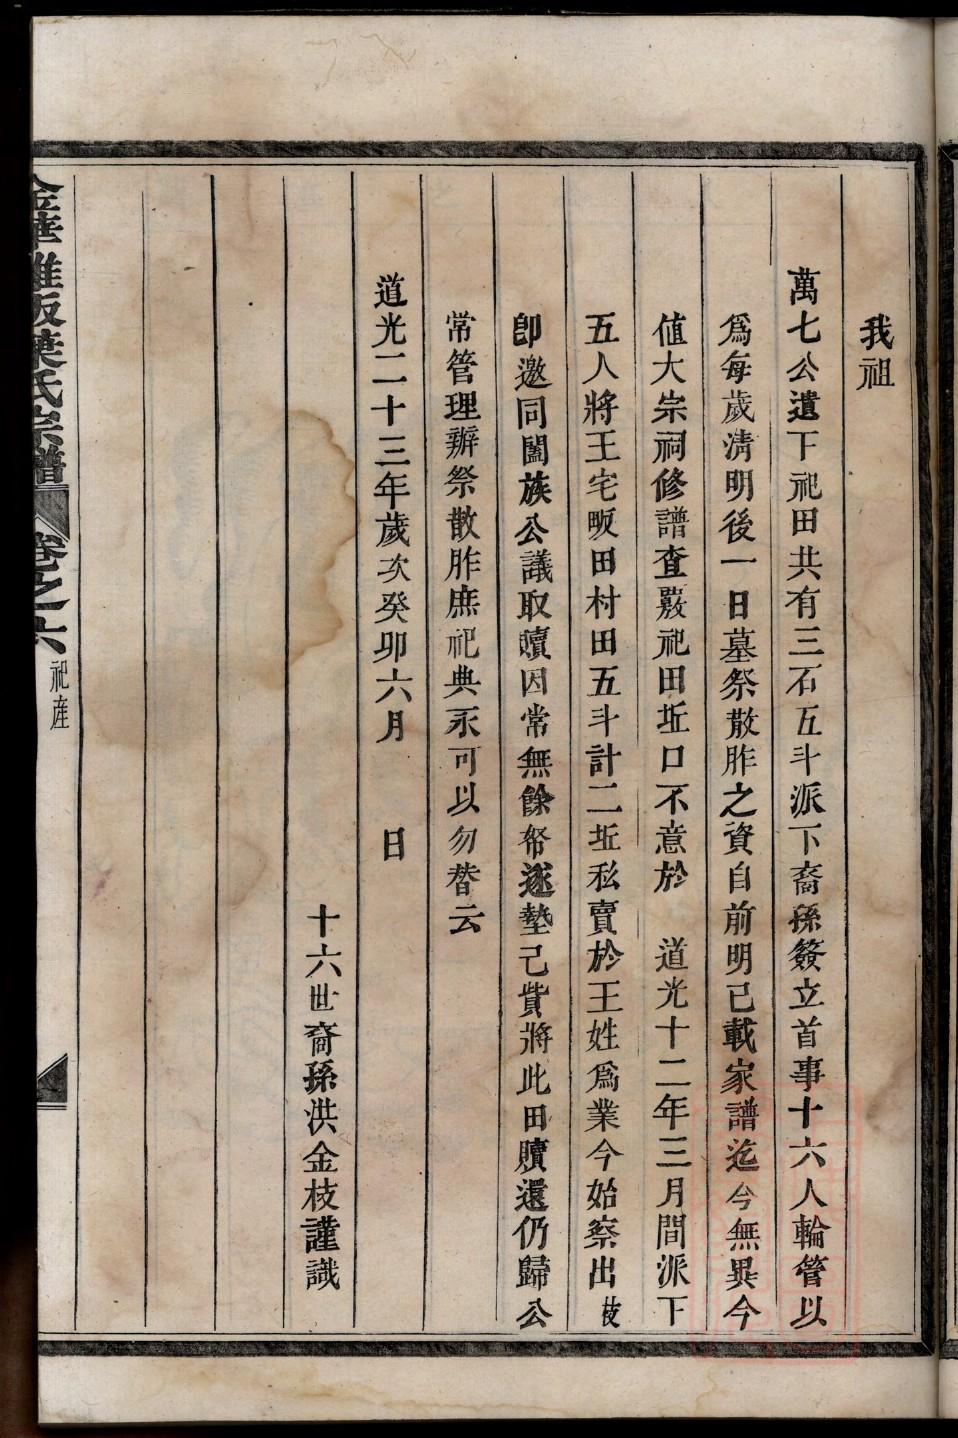 我祖
萬七公遺下祀田共有三石五斗派下裔孫簽立首事十六人輪管以
爲每歲清明後一日墓祭散胙之資自前明已載家譜迄今無異今
値大宗祠修譜查覈祀田坵口不意於 道光十二年三月間派下
五人將王宅畈田村田五斗計二坵私賣於王姓爲業今始察出枝
卽邀同闔族公議取贖因常無餘帑遂墊己貲將此田贖還仍歸公
常管理辦祭散胙庶祀典永可以勿替云
道光二十三年歲次癸卯六月 日
十六世裔孫洪金枝謹識
金華雅畈葉氏宗譜 卷之六 祀産